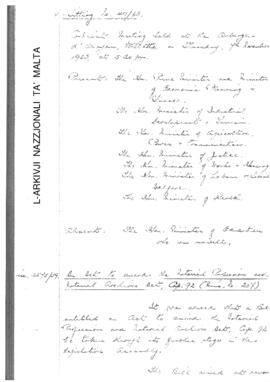 L-ARKIVJI NAZZJONALI TA' MALTA
Meeting No. 40/63.
Cabinet Meeting held at the Auberge
d'Aragon, Valletta on Thursday, 7th November
1963, at 5.30 pm.
Present: The Hon. Prime Minister and Minister
of Economic Planning &
Finance.
The Hon. Minister of Industrial
Development & Tourism.
The Hon. Minister of Agriculture,
Power & Communications.
The Hon. Minister of Justice.
The Hon. Minister of Works & Housing
The Hon. Minister of Labour & Social
Welfare.
The Hon. Minister of Health.
Absent: The Hon. Minister of Education
who was unwell.
An Act to amend the Internal Possession and
Notarial Archives Act, Cap. 92
It was agreed that a Bill
entitled an Act to amend the
and Notarial Archives Act, Cap. 92
be taken through its further stages in the
Legislative Assembly.
The Bill aimed at